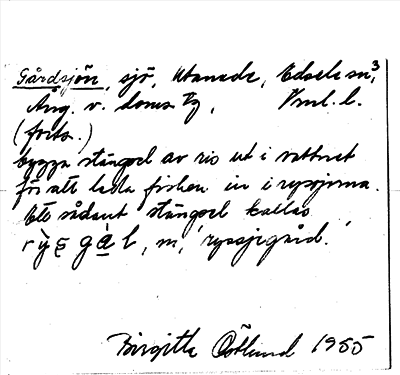 Gårdsjön, sjö, Utanede, Edsele sn, 3
Ång. v. Loms Tg, Vml. l.
(forts.)
bygga stängsel av ris ut i vattnet
för att leda fisken in i ryssjorna.
Ett sådant stängsel kallas
, m, ryssjegård.
Birgitta Östlund 1955